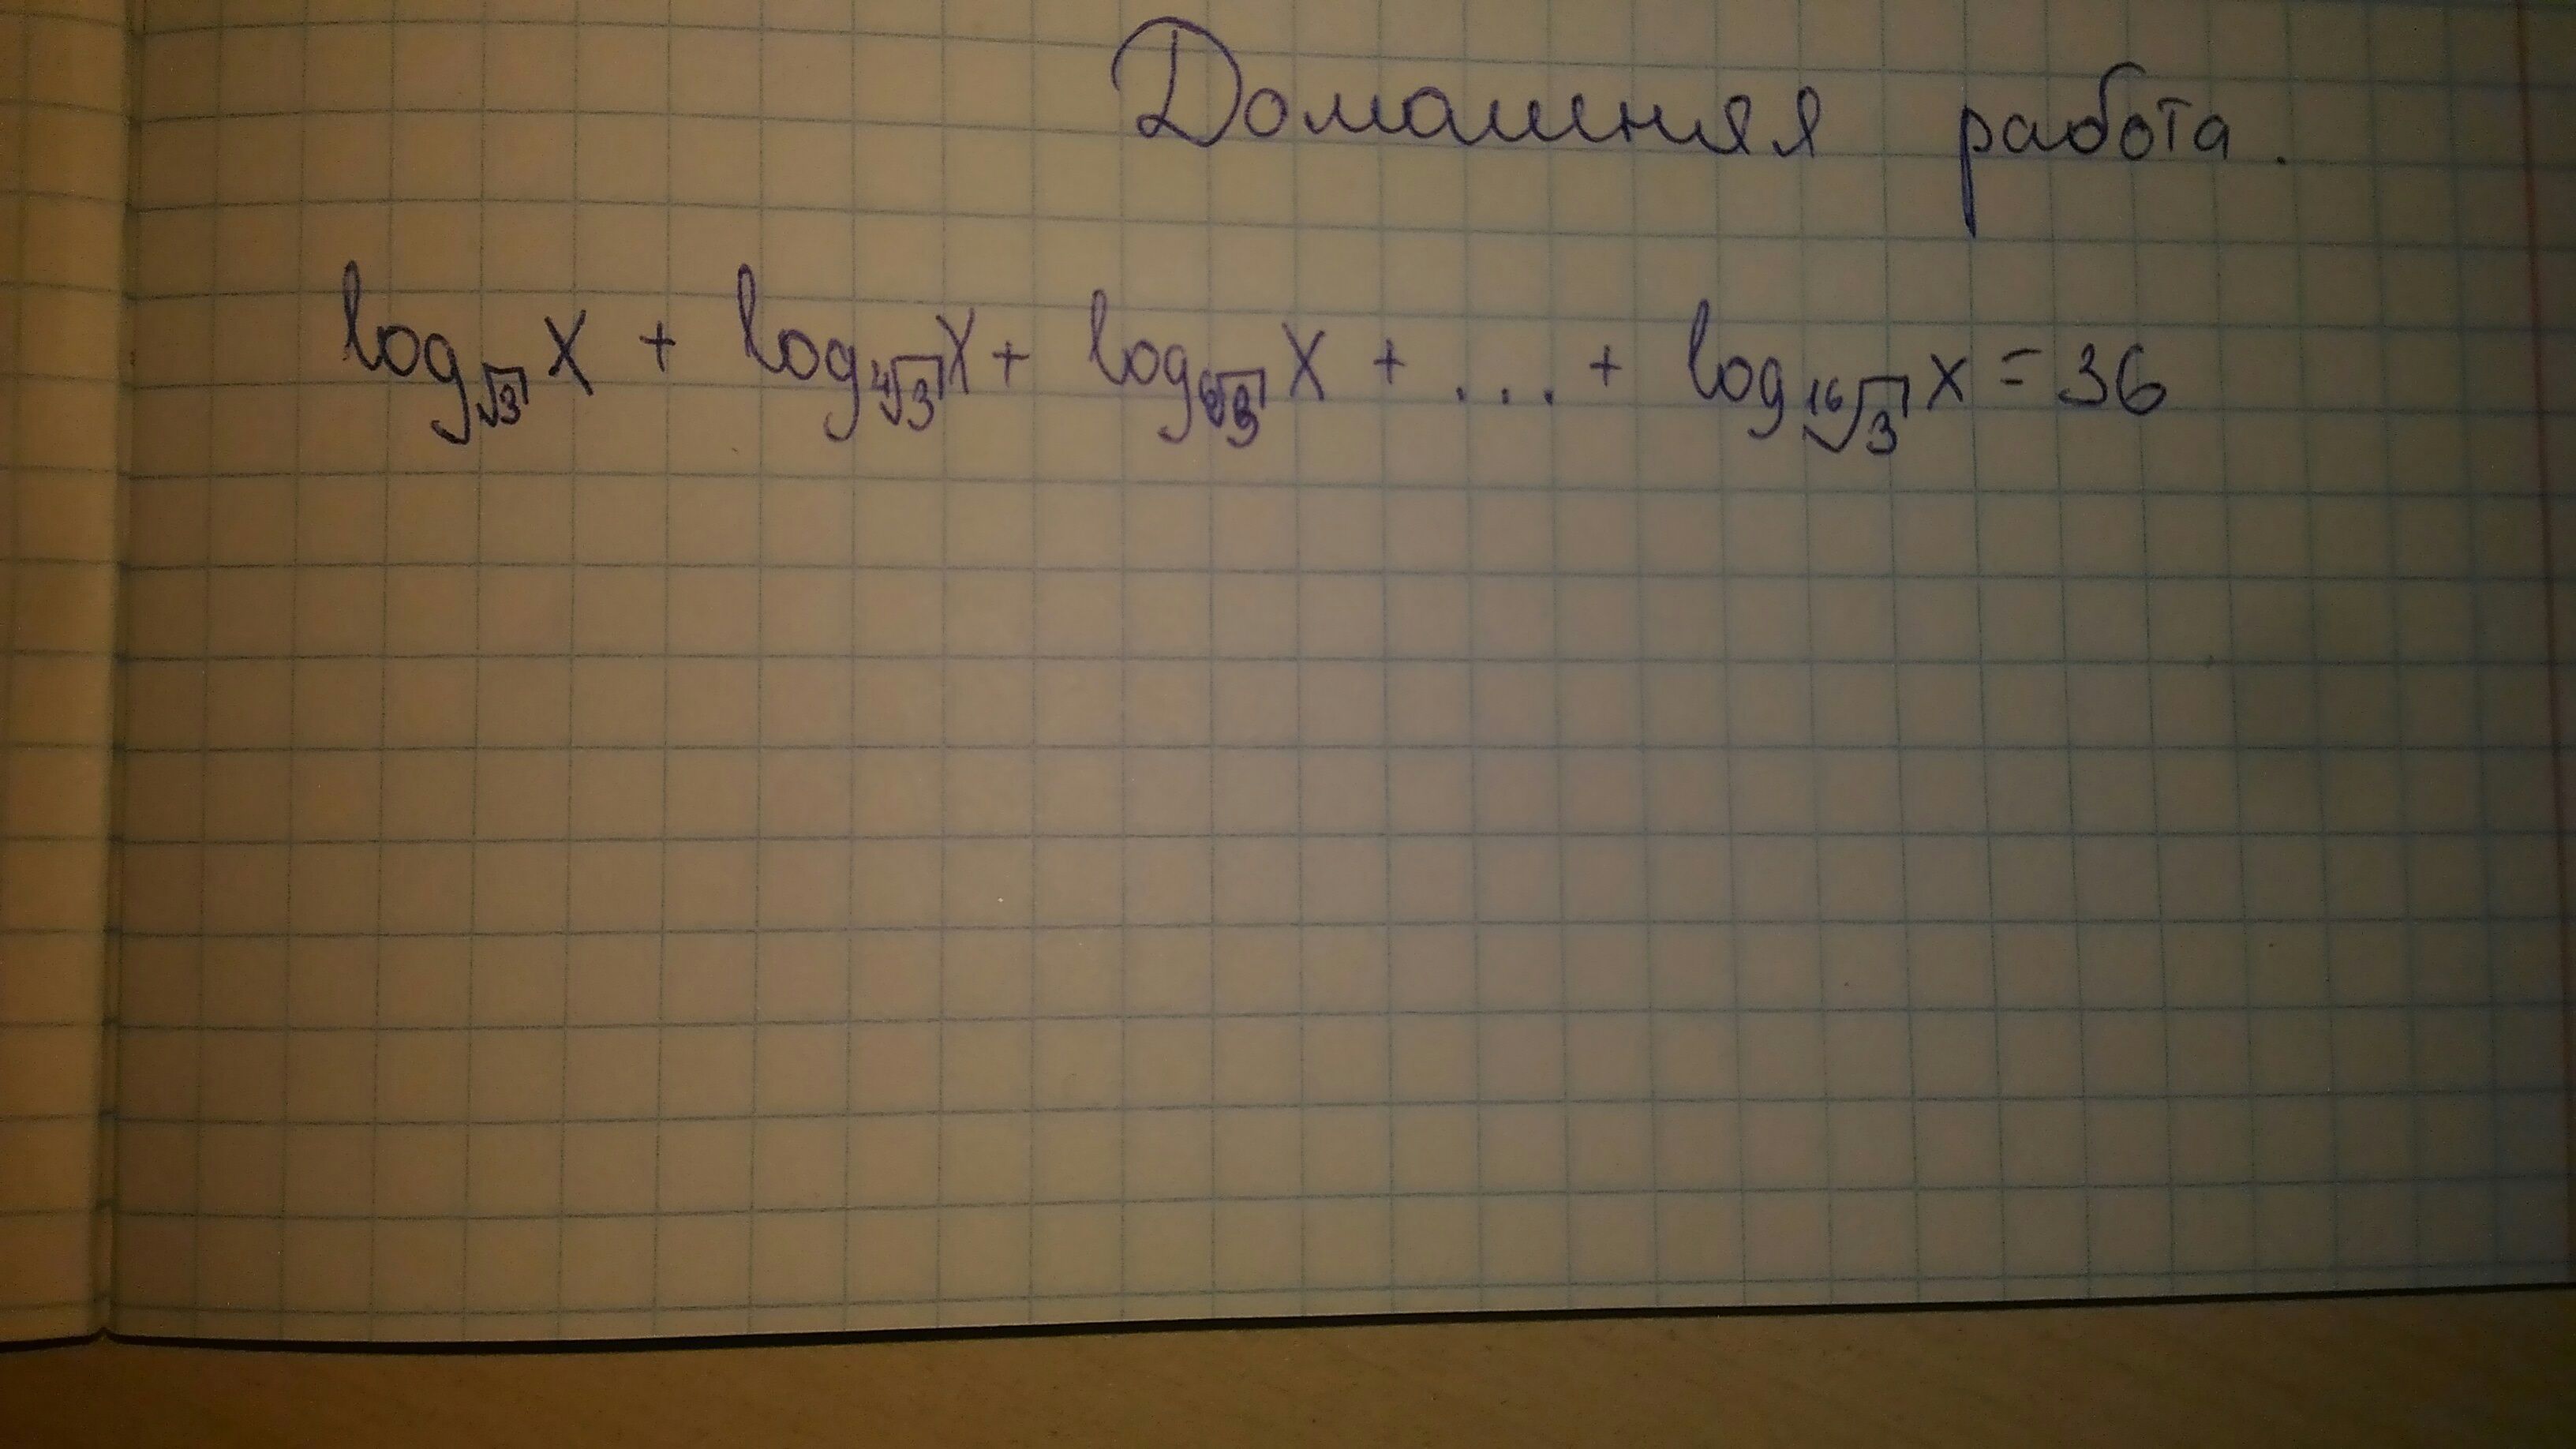 Домашняя работа.
log_{√3} x + log_{⁴√3} x + log_{⁶√3} x + ... + log_{¹⁶√3} x = 36